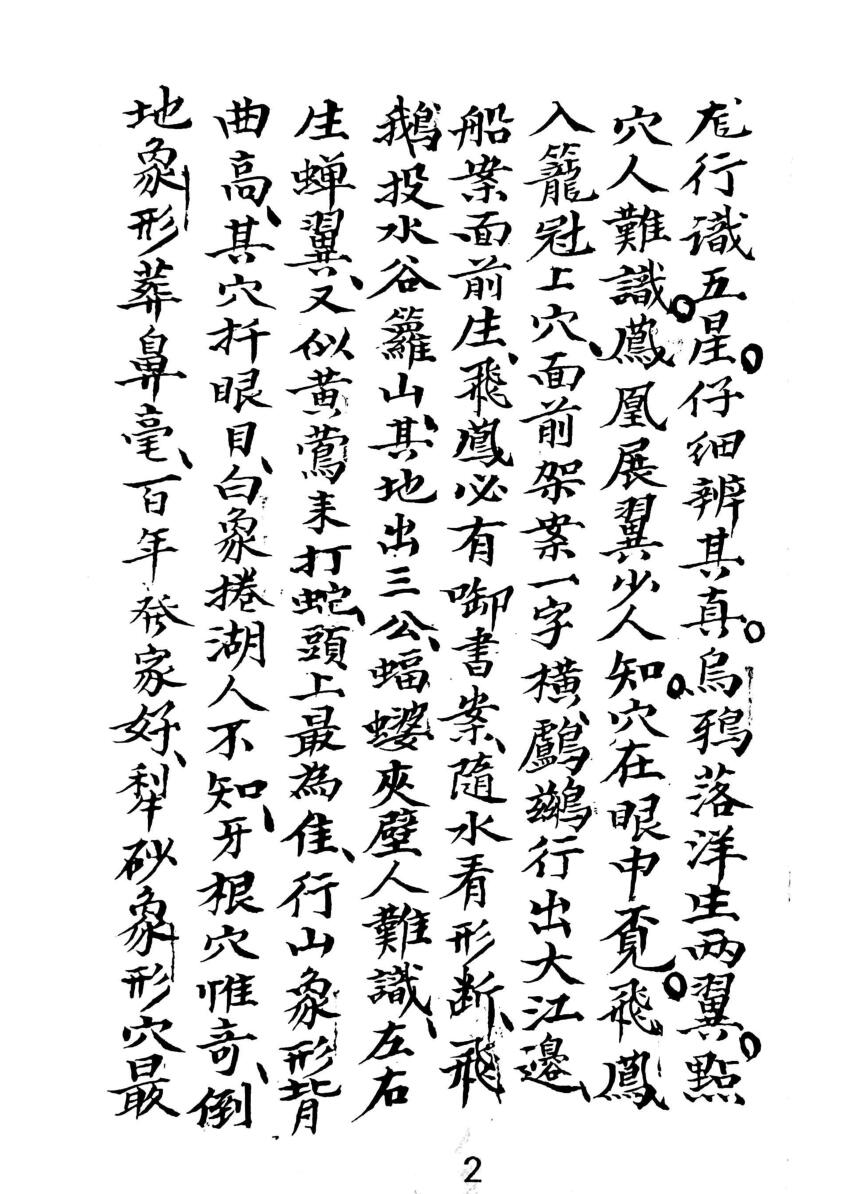 尨行識五星。仔细辨其真。烏鴉落洋生两翼。點
穴人難識。鳳凰展翼少人知。穴在眼中覔。飛鳳
入籠冠上穴、面前架案一字横、鸕鷀行出大江邊、
船案面前生、飛鳳必有啣書案、隨水看形断、飛
鵝投水谷籮山、其地出三公、蝠蟋夾壁人難識、左右
生蝉翼、又似黄鶯来打蛇、頭上最為佳、行山象形背
曲高、其穴扦眼目、白象捲湖人不知、牙根穴惟奇、倒
地象形葬鼻毫、百年發家好、犁砂象形穴最
2